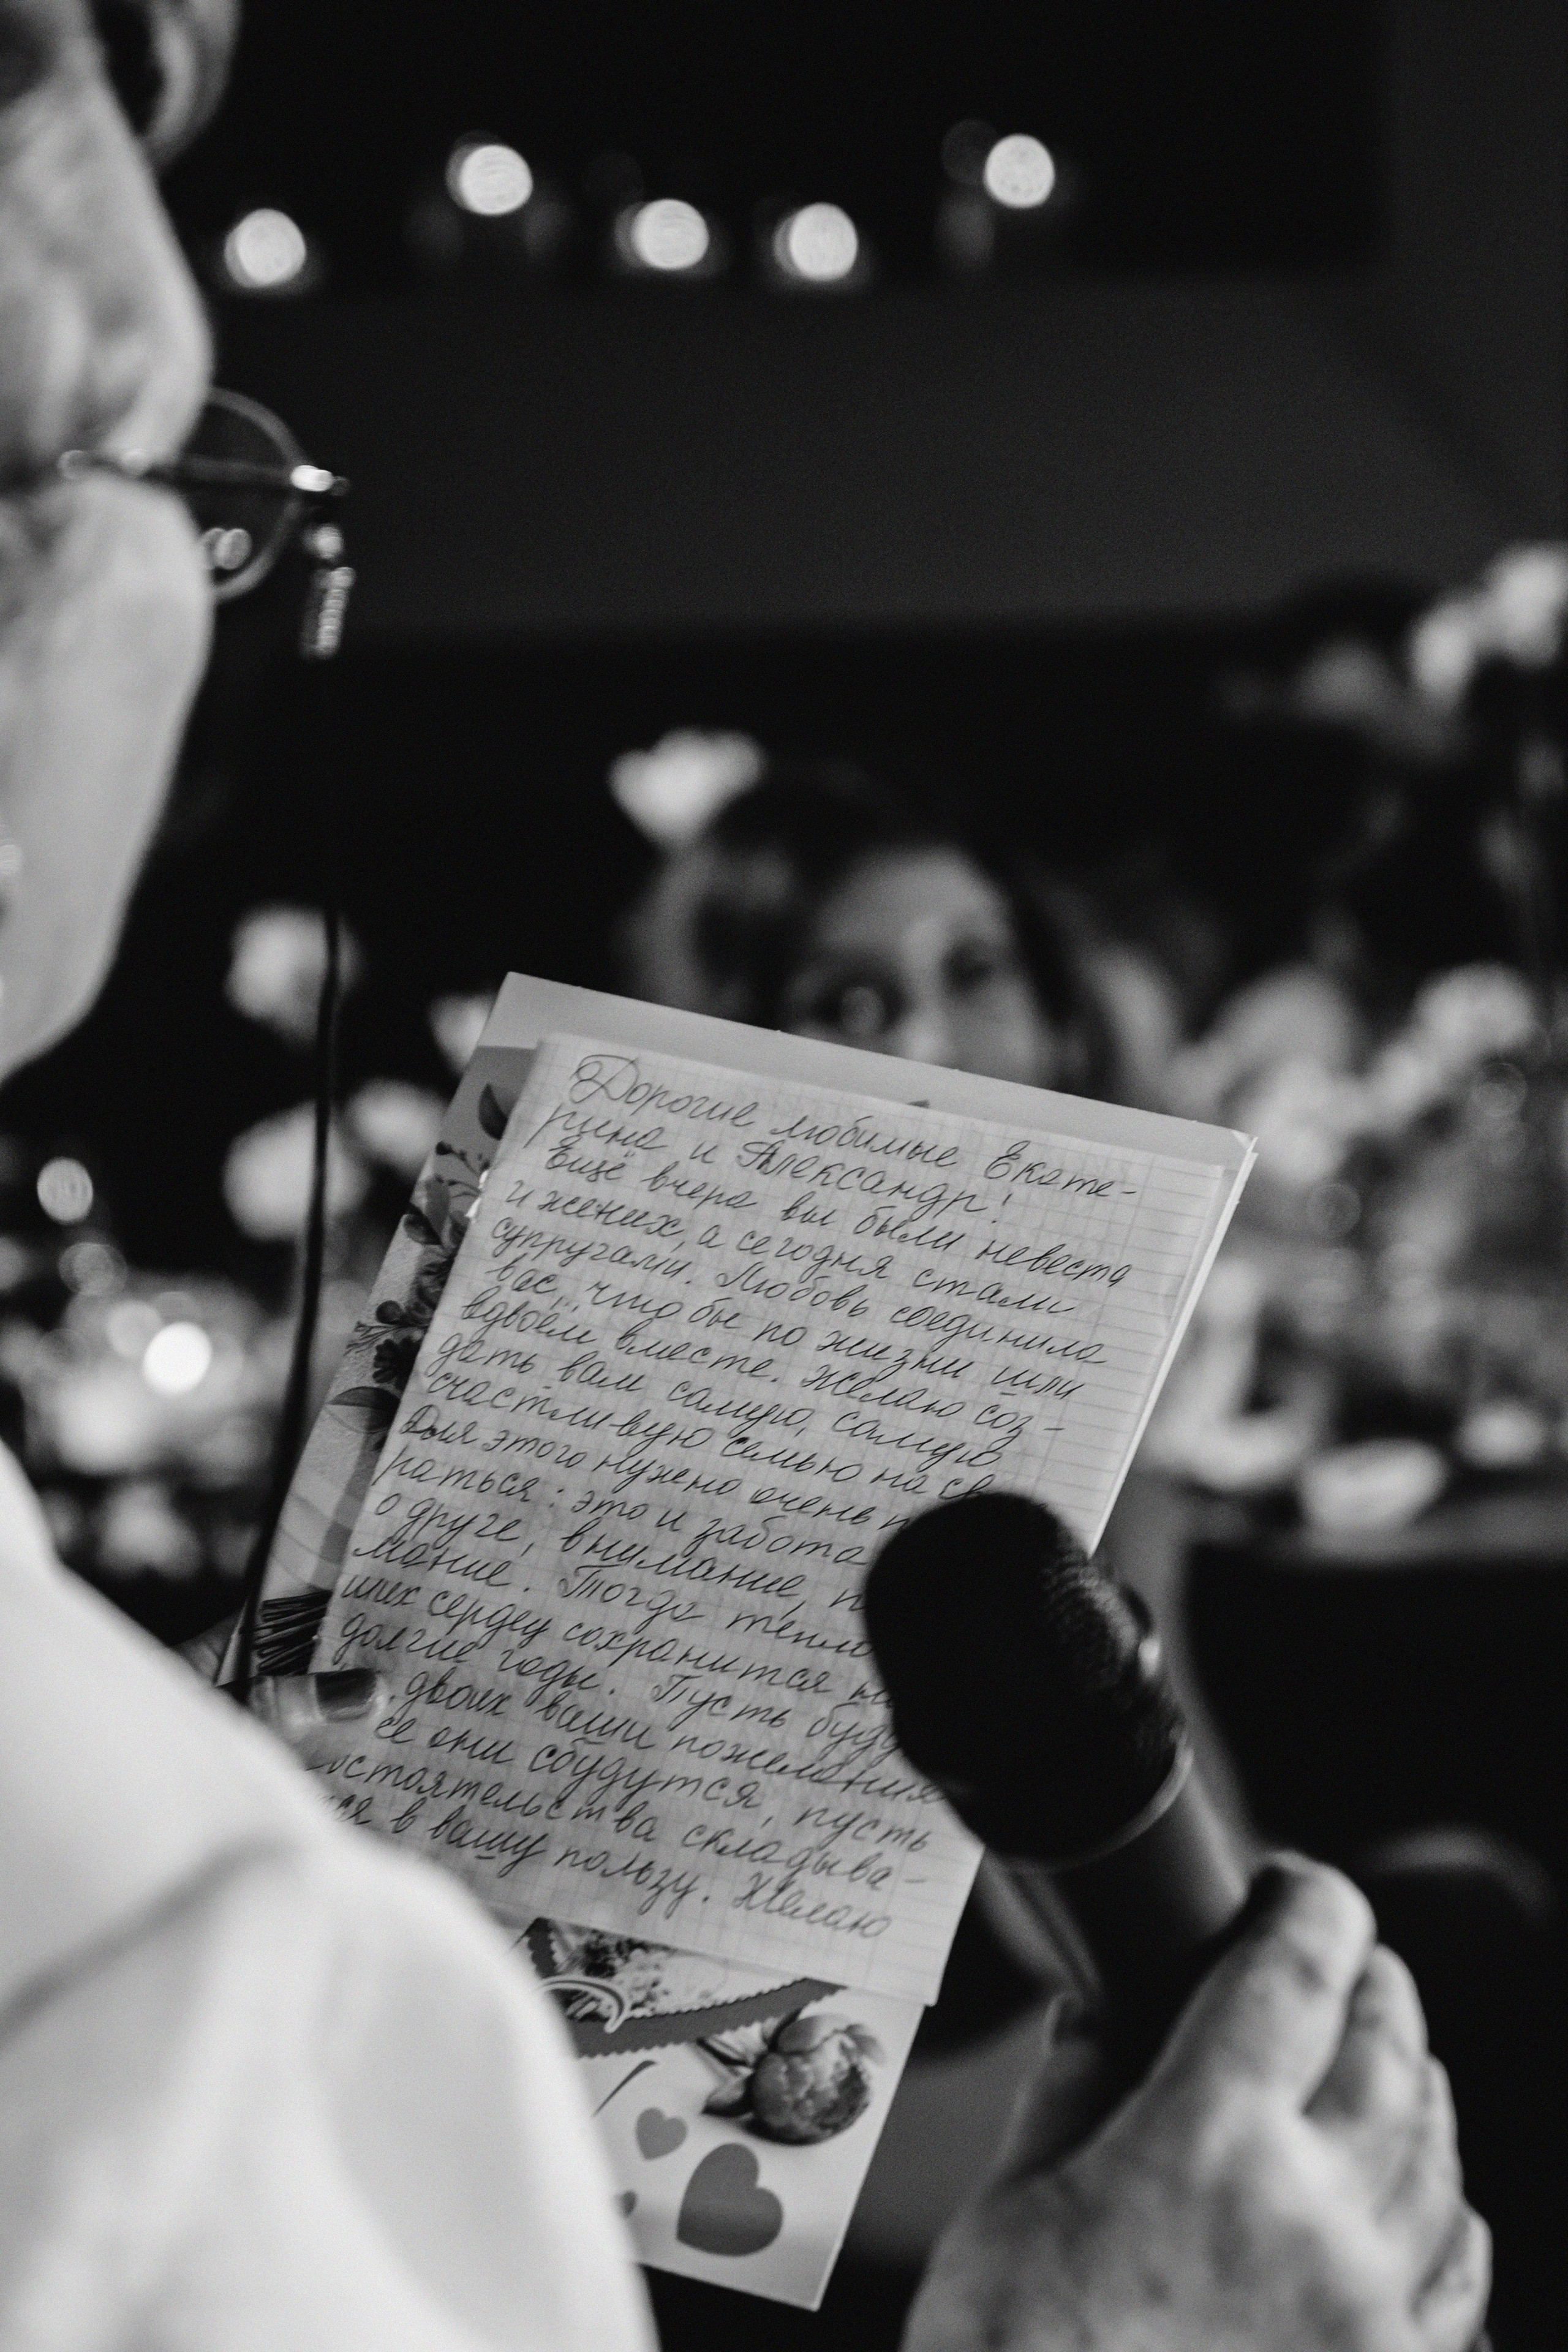 Дорогие любимые Екате-
рина и Александр!
Ещё вчера вы были невеста
и жених, а сегодня стали
супругами. Любовь соединила
вас, что бы по жизни шли
вдвоём вместе. Желаю соз-
дать вам самую, самую
счастливую семью на св
Для этого нужно очень
раться: это и забота
о друге, внимание,
мание. Тогда тепло
ших сердец сохранится на
долгие годы. Пусть буду
двоих ваши пожелания
се они сбудутся, пусть
остоятельства складыва-
ся в вашу пользу. Желаю